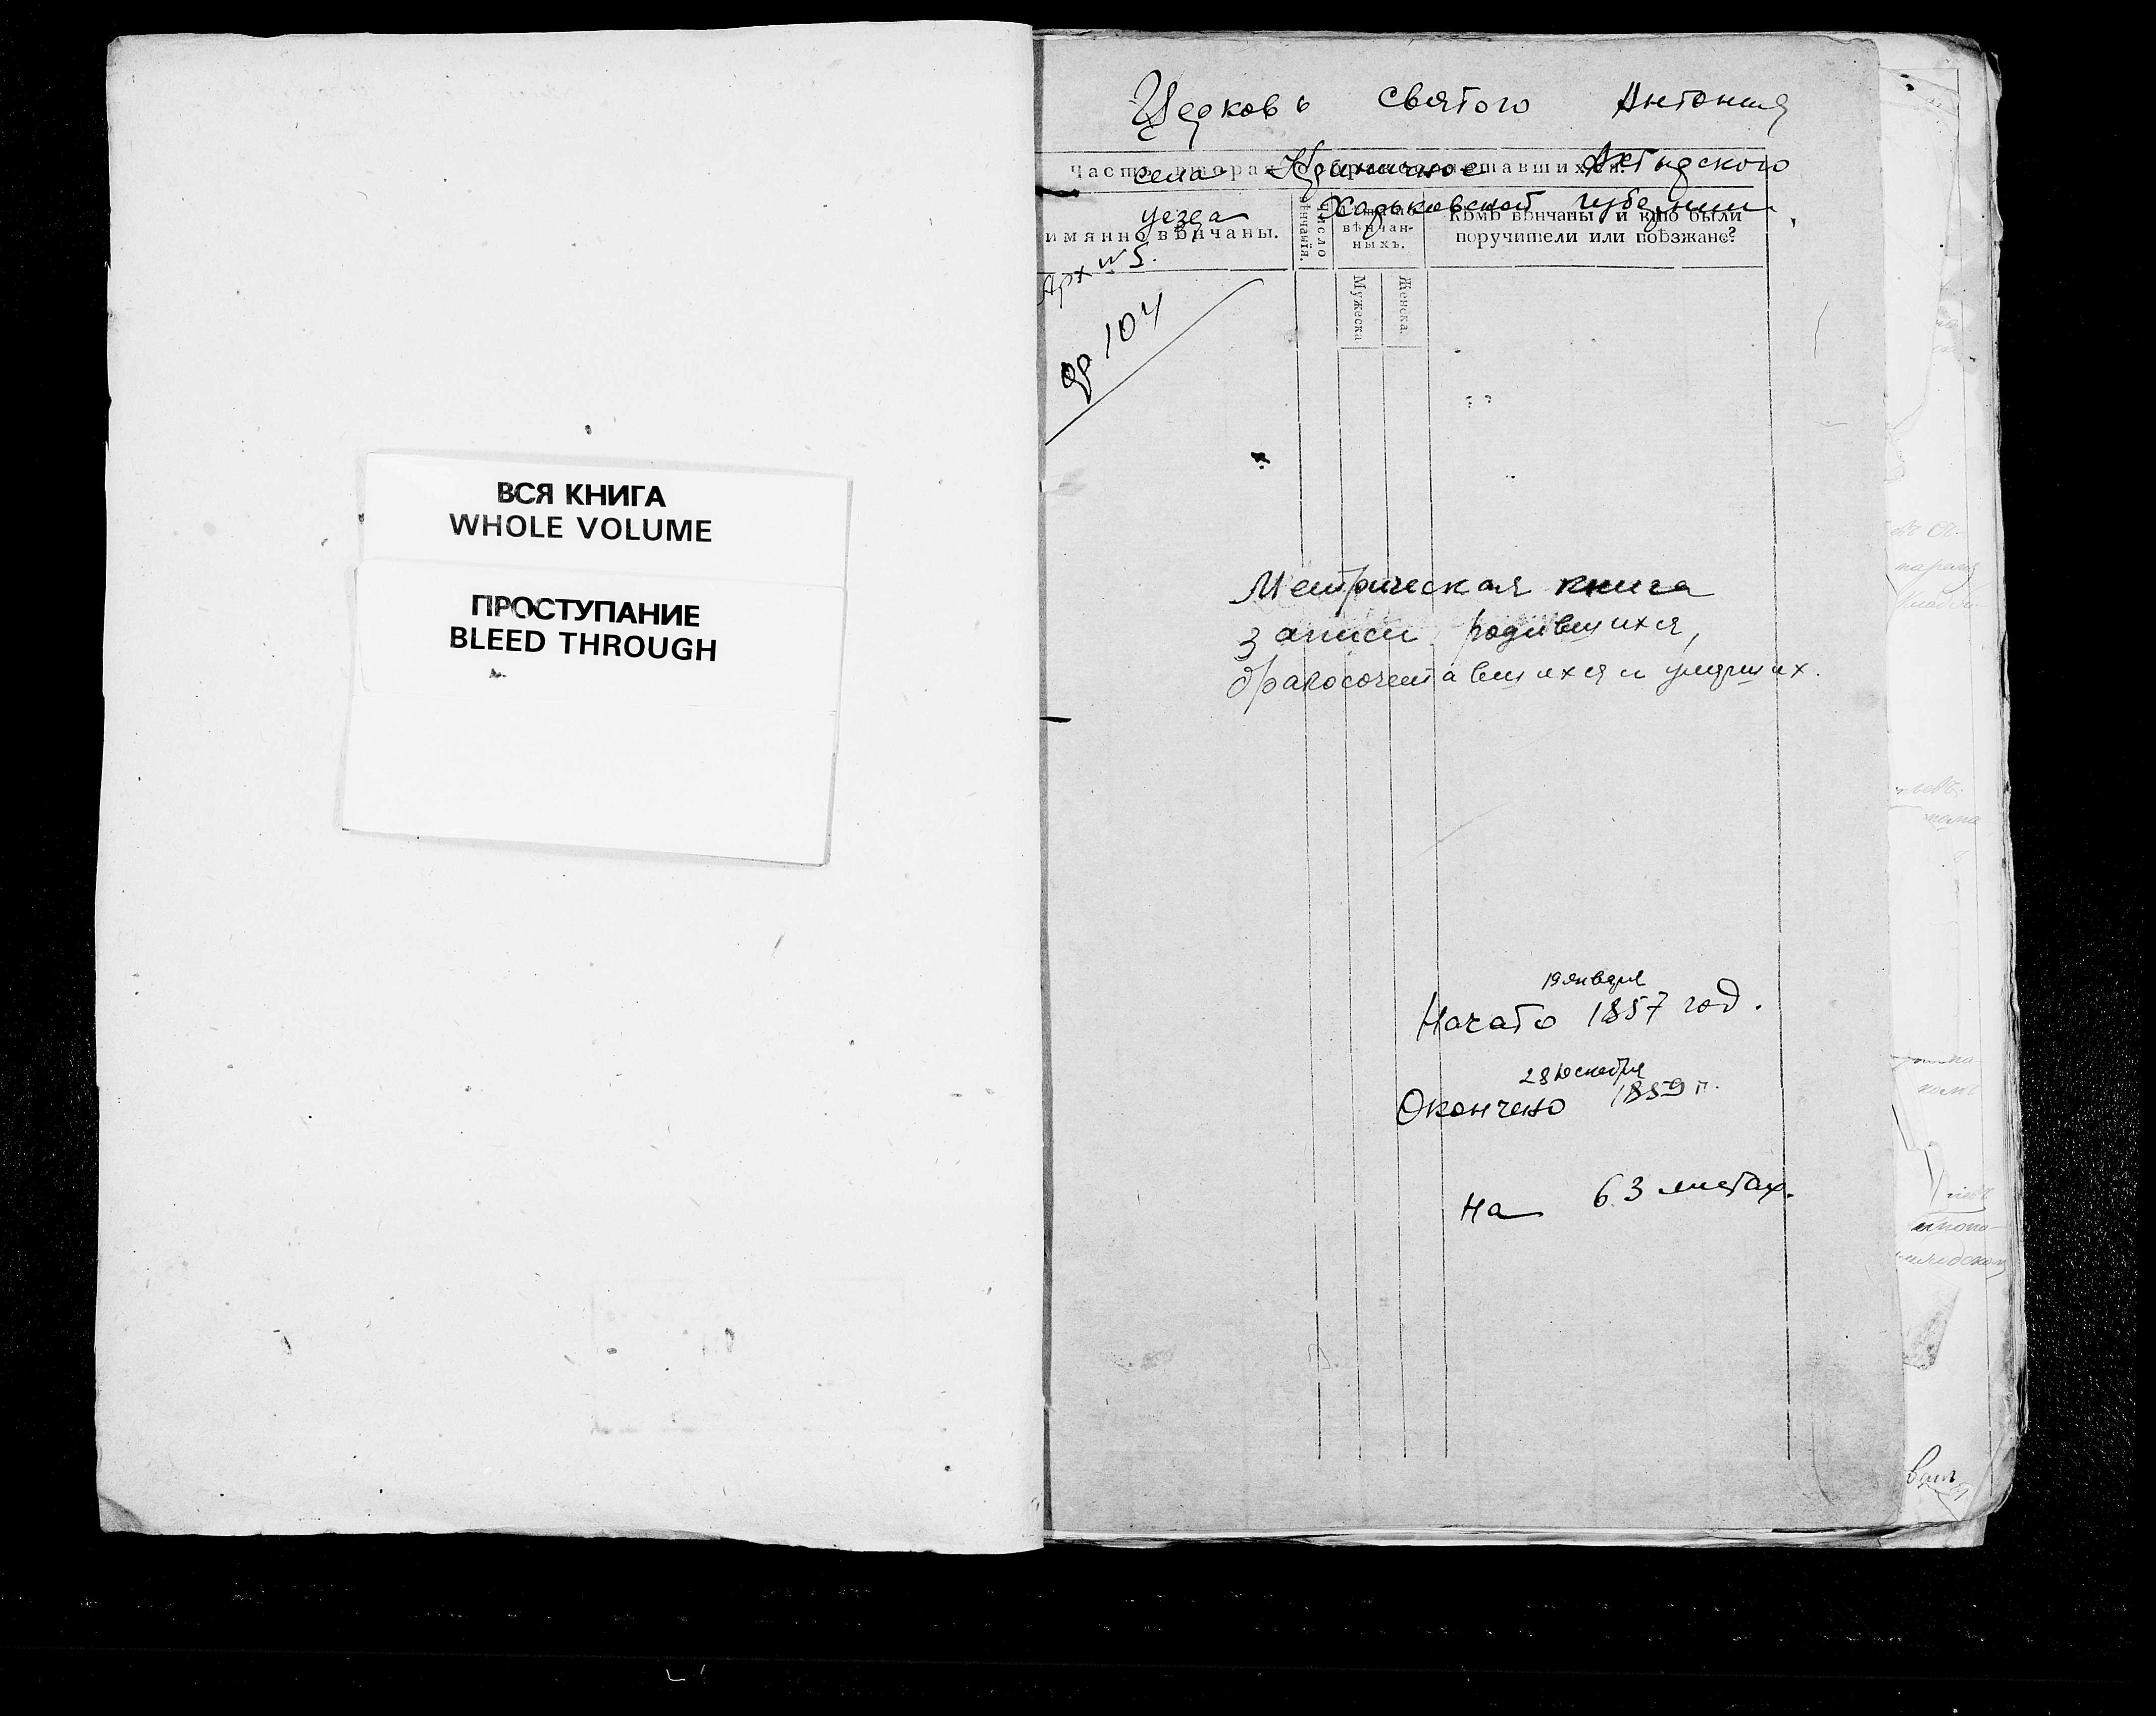 ВСЯ КНИГА
WHOLE VOLUME
ПРОСТУПАНИЕ
BLEED THROUGH
Церковь святого Антония
села Криничное Ахтырского
уезда Харьковской губернии
имянно вѣнчаны.
число
вѣнчан-
ныхъ.
Кѣмъ вѣнчаны и кто были
поручители или поѣзжане?
Мужеска
Женска.
Арх №5.
др 104
Метрическая книга
записи родившихся,
бракосочетавшихся и умерших.
19 января
Начато 1857 год.
28 декабря
Окончено 1859 г.
на 63 листах.